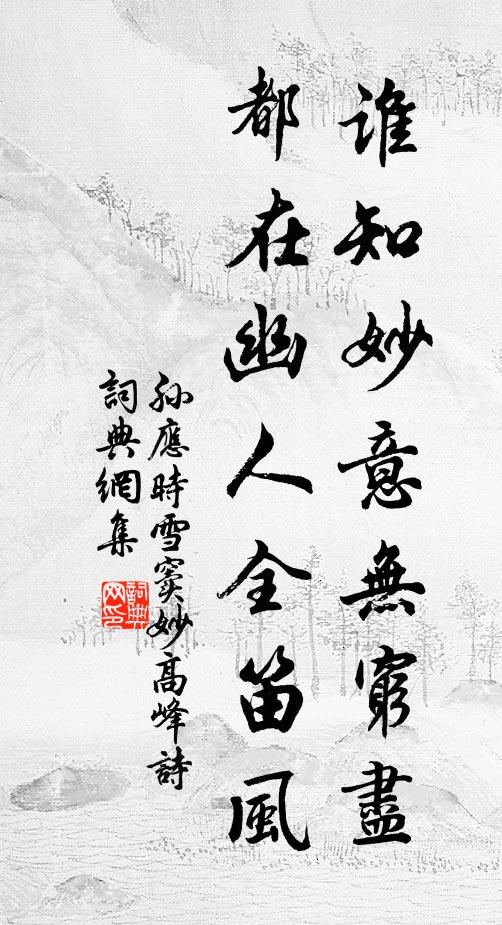 誰知妙意無窮盡
都在幽人全笛風
孫應時雪竇妙高峰詩
詞典網集
詞典網印